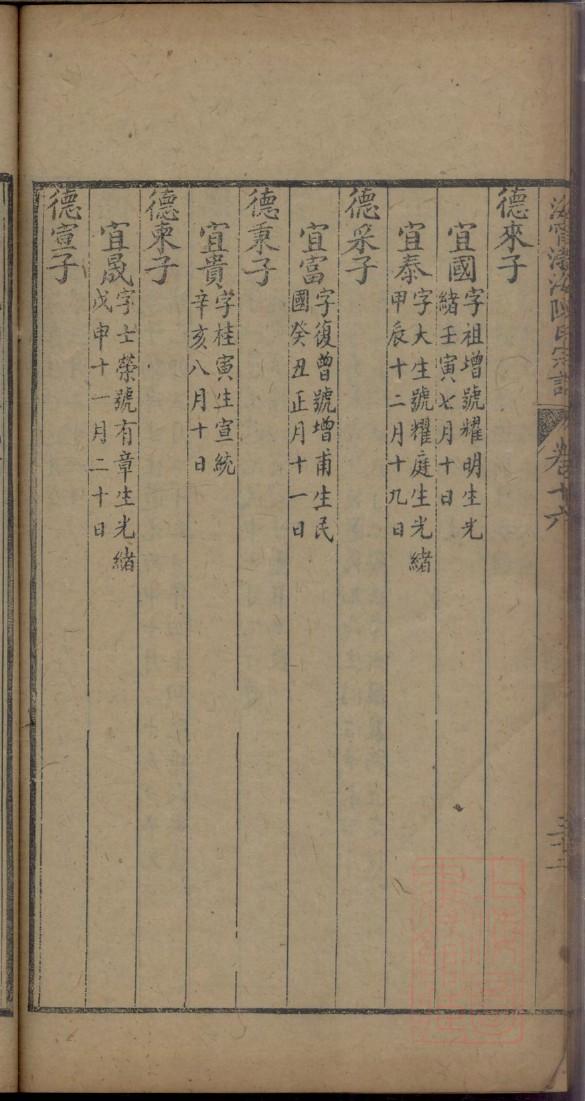 海寧渤海陳氏宗譜 卷十六 三十二
德來子
宜國 字祖增號耀明生光
緒壬寅七月十日
宜泰 字大生號耀庭生光緒
甲辰十二月十九日
德采子
宜富 字復曾號增甫生民
國癸丑正月十一日
德秉子
宜貴 字桂寅生宣統
辛亥八月十日
德柬子
宜晟 字士榮號有章生光緒
戊申十一月二十日
德宣子